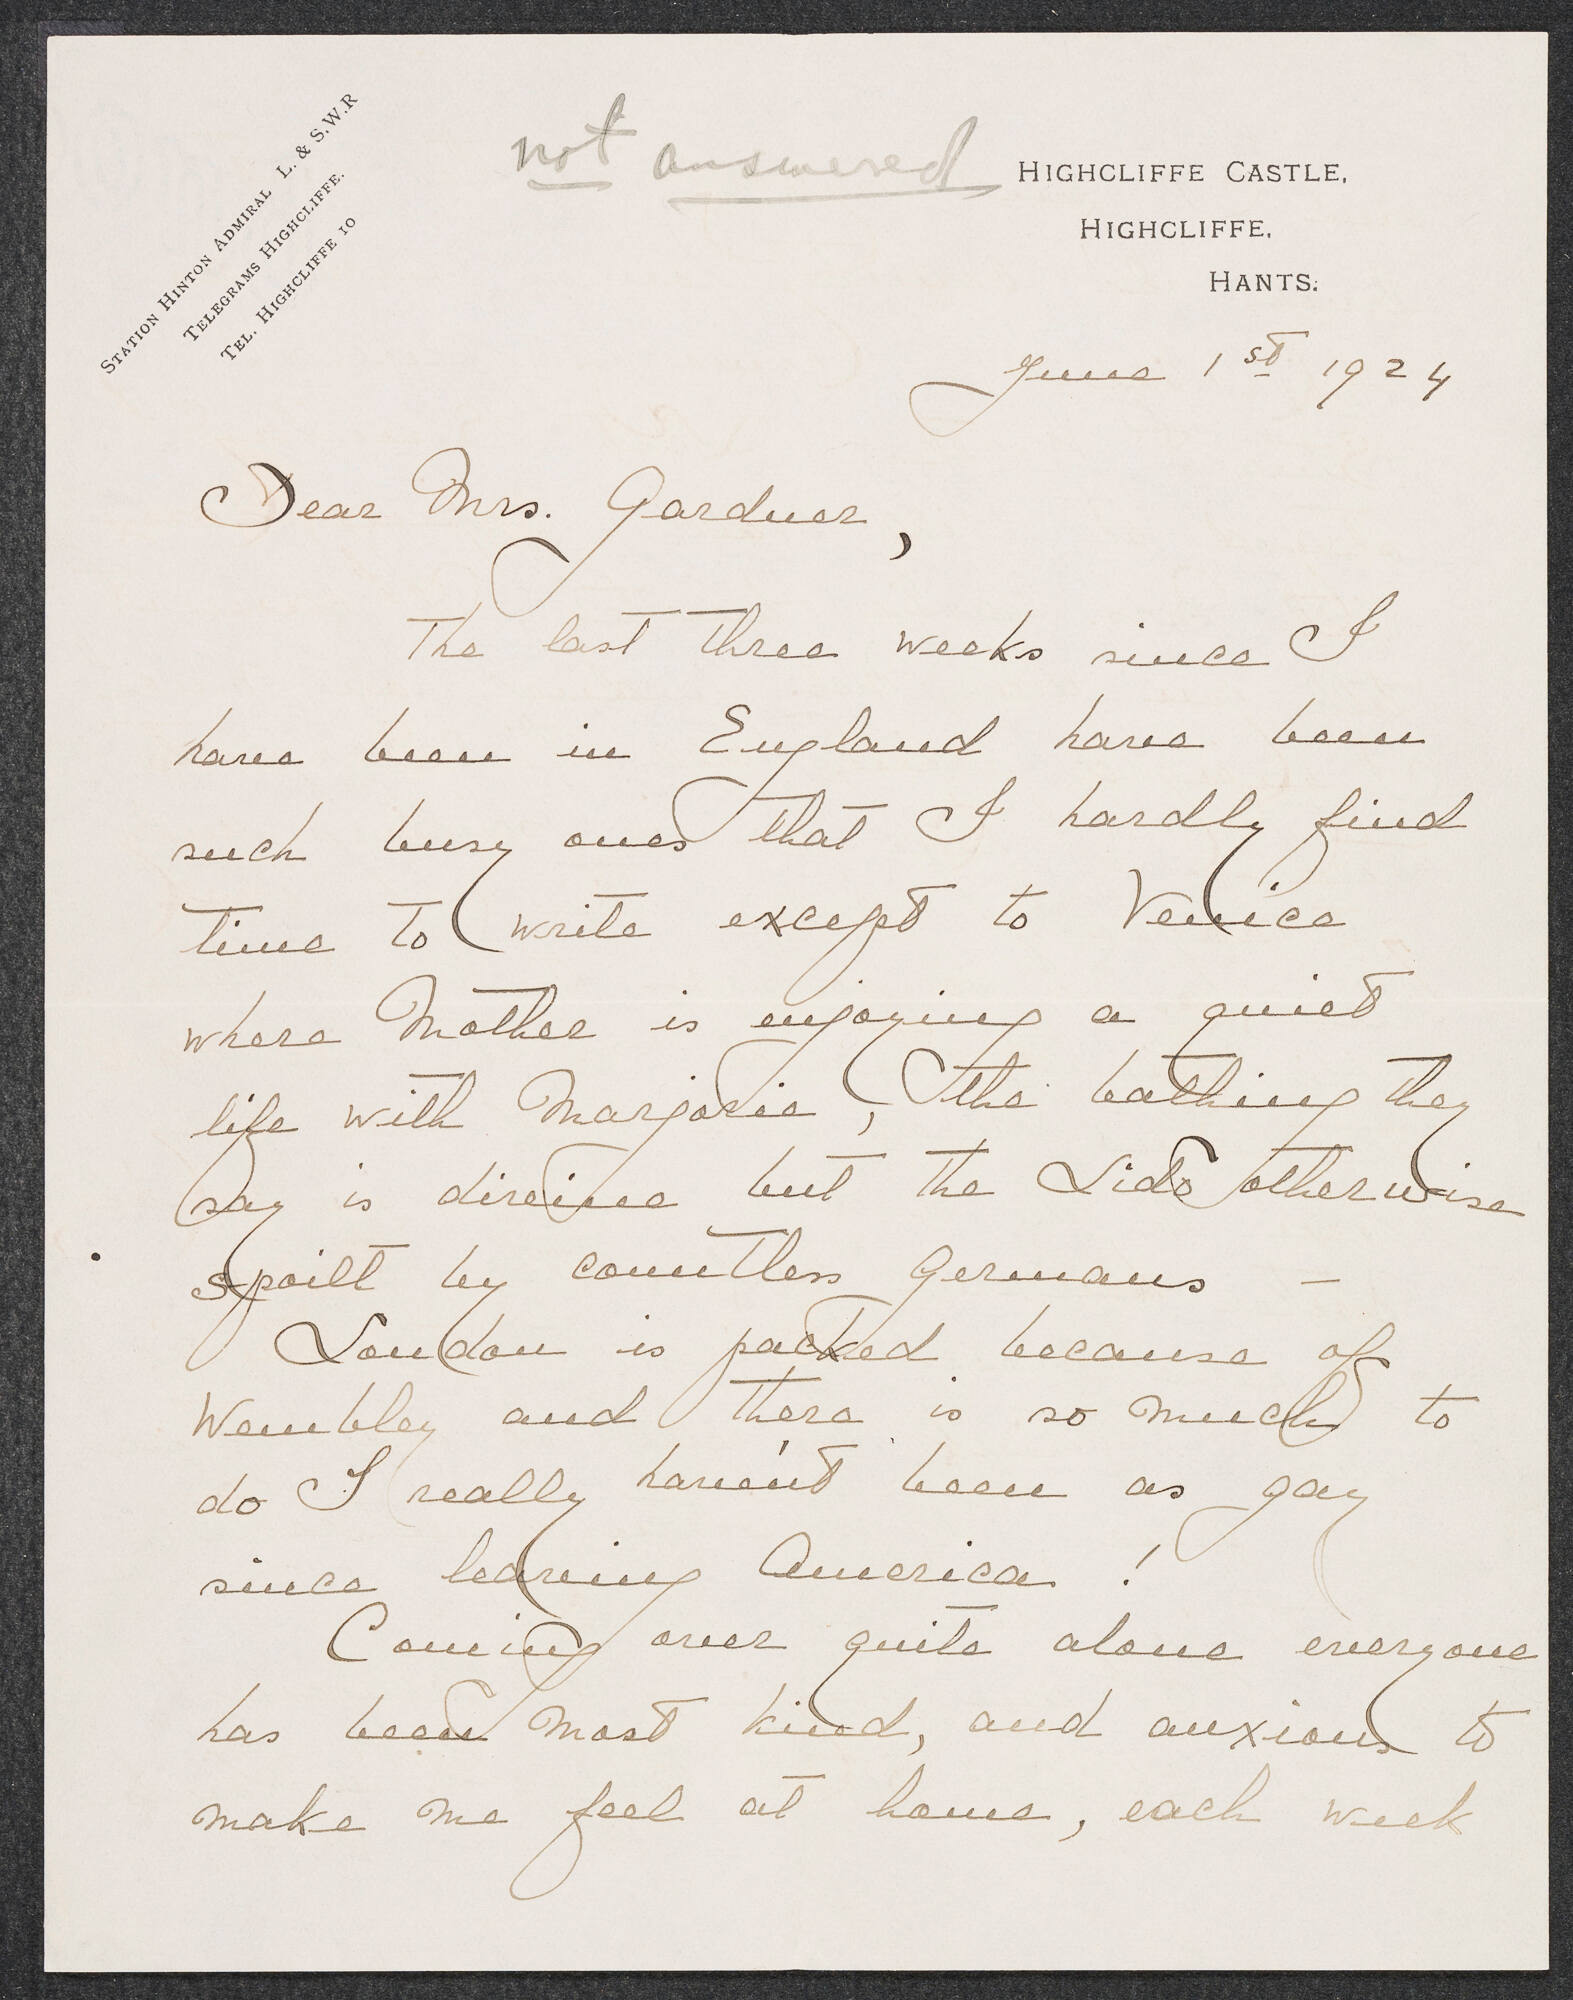 STATION HINTON ADMIRAL L. & S.W.R
TELEGRAMS HIGHCLIFFE.
TEL. HIGHCLIFFE 10
not answered
HIGHCLIFFE CASTLE,
HIGHCLIFFE,
HANTS.
June 1st 1924
Dear Mrs. Gardner,
The last three weeks since I
have been in England have been
such busy ones that I hardly find
time to write except to Venice
where Mother is enjoying a quiet
life with Marjorie, the bathing they
say is divine but the Lido otherwise
spoilt by countless Germans –
London is packed because of
Wembley and there is so much to
do I really haven't been as gay
since leaving America!
Coming over quite alone everyone
has been most kind, and anxious to
make me feel at home, each week